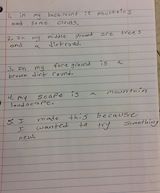 1. in my background is mountains
and some clouds,
2. In my middle ground are trees
and a
3. In my foreground is a
brown dirt round.
4. my scape is a mountain
landscape.
5. I made this because
I wanted to try something
new.